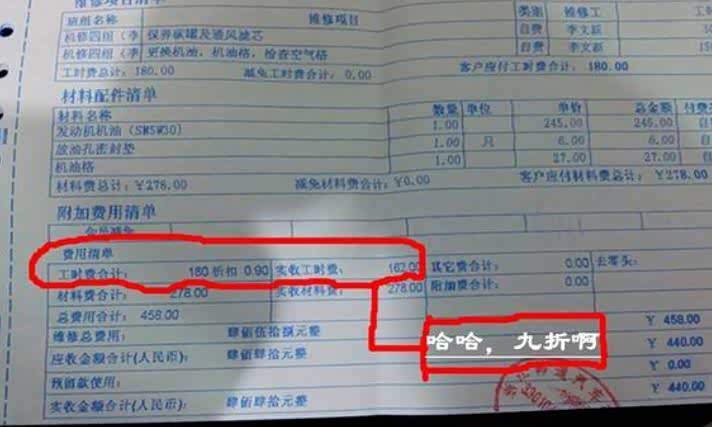 维修项目清单
班组名称 维修项目 类别 维修工
机修四组(李 保养碳罐及通风滤芯 自费 李文跃
机修四组(李 更换机油,机油格,检查空气格 自费 李文跃
工时费总计:180.00 减免工时费合计:0.00 客户应付工时费合计:180.00
材料配件清单
材料名称 数量 单位 单价 总金额
发动机机油(SM5W30) 1.00 245.00 245.00 自
放油孔密封垫 1.00 只 6.00 6.00 自
机油格 1.00 27.00 27.00 自
材料费总计:¥278.00 减免材料费合计:¥0.00 客户应付材料费总计:¥278.00
附加费用清单
会员减免
费用清单
工时费合计: 180 折扣 0.90 实收工时费: 162.00 其它费合计: 0.00 去零头:
材料费合计: 278.00 实收材料费: 278.00 附加费合计: 0.00
总费用合计: 458.00
维修总费用: 肆佰伍拾捌元整 ¥ 458.00
应收金额合计(人民币): 肆佰肆拾元整 ¥ 440.00
预留款使用: ¥ 0.00
实收金额合计(人民币): 肆佰肆拾元整 ¥ 440.00
哈哈,九折啊